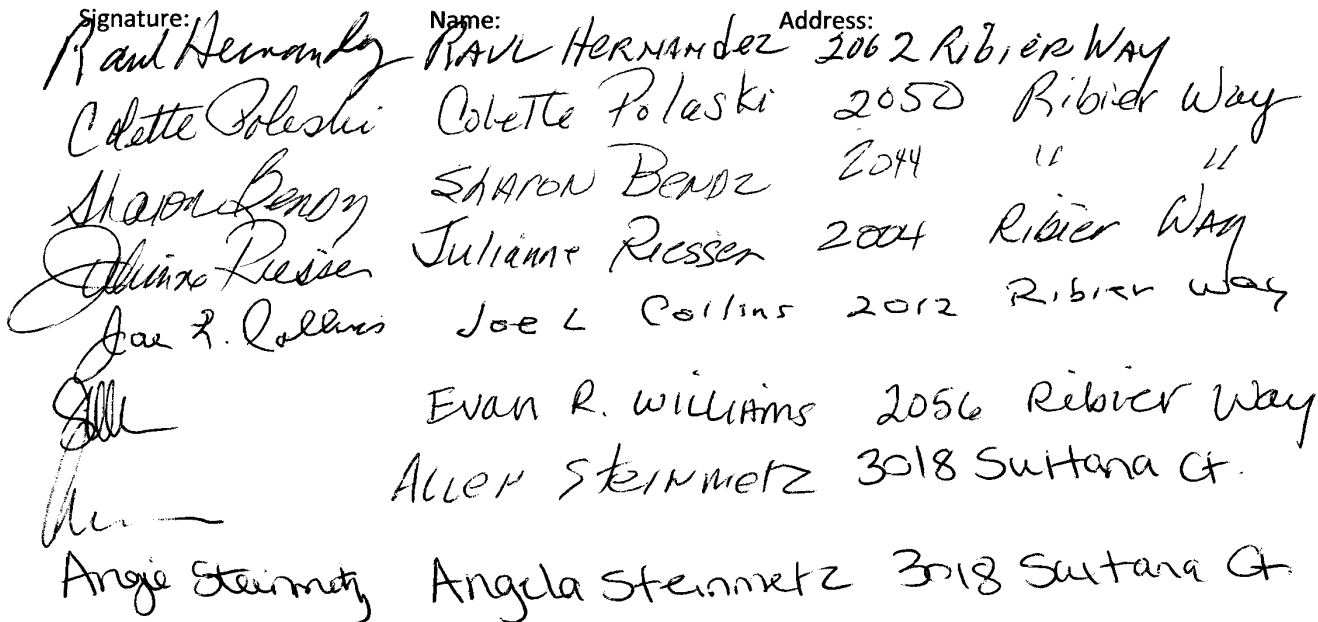 Signature: Name: Address:
Raul Hernandez RAUL HERNANdez 2062 RibieR WAY
Colette Polaski Colette Polaski 2050 Ribier Way
Sharon Bendz SHARON BENDZ 2044 " "
Julianne Riessen Julianne Riessen 2004 Ribier WAY
Joe L. Collins Joe L Collins 2012 Ribier way
Evan R. WilliAms 2056 Ribier Way
Allen SteinmetZ 3018 Sultana Ct.
Angie Steinmetz Angela Steinmetz 3018 Sultana Ct.